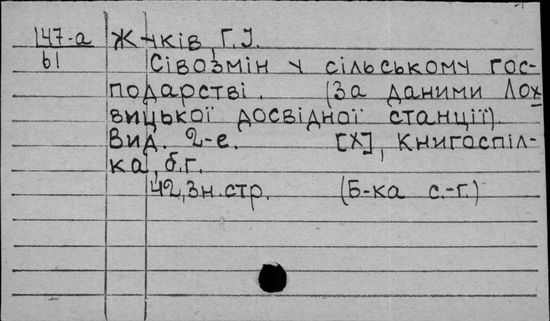 147-а Жуків, Г.І.
61 Сівозмін у сільському гос-
подарстві. (За даними Лох-
вицької досвідної станції).
Вид. 2-е. [Х], Книгоспіл-
ка, б.г.
42, 3н.стр. (Б-ка с.-г.)